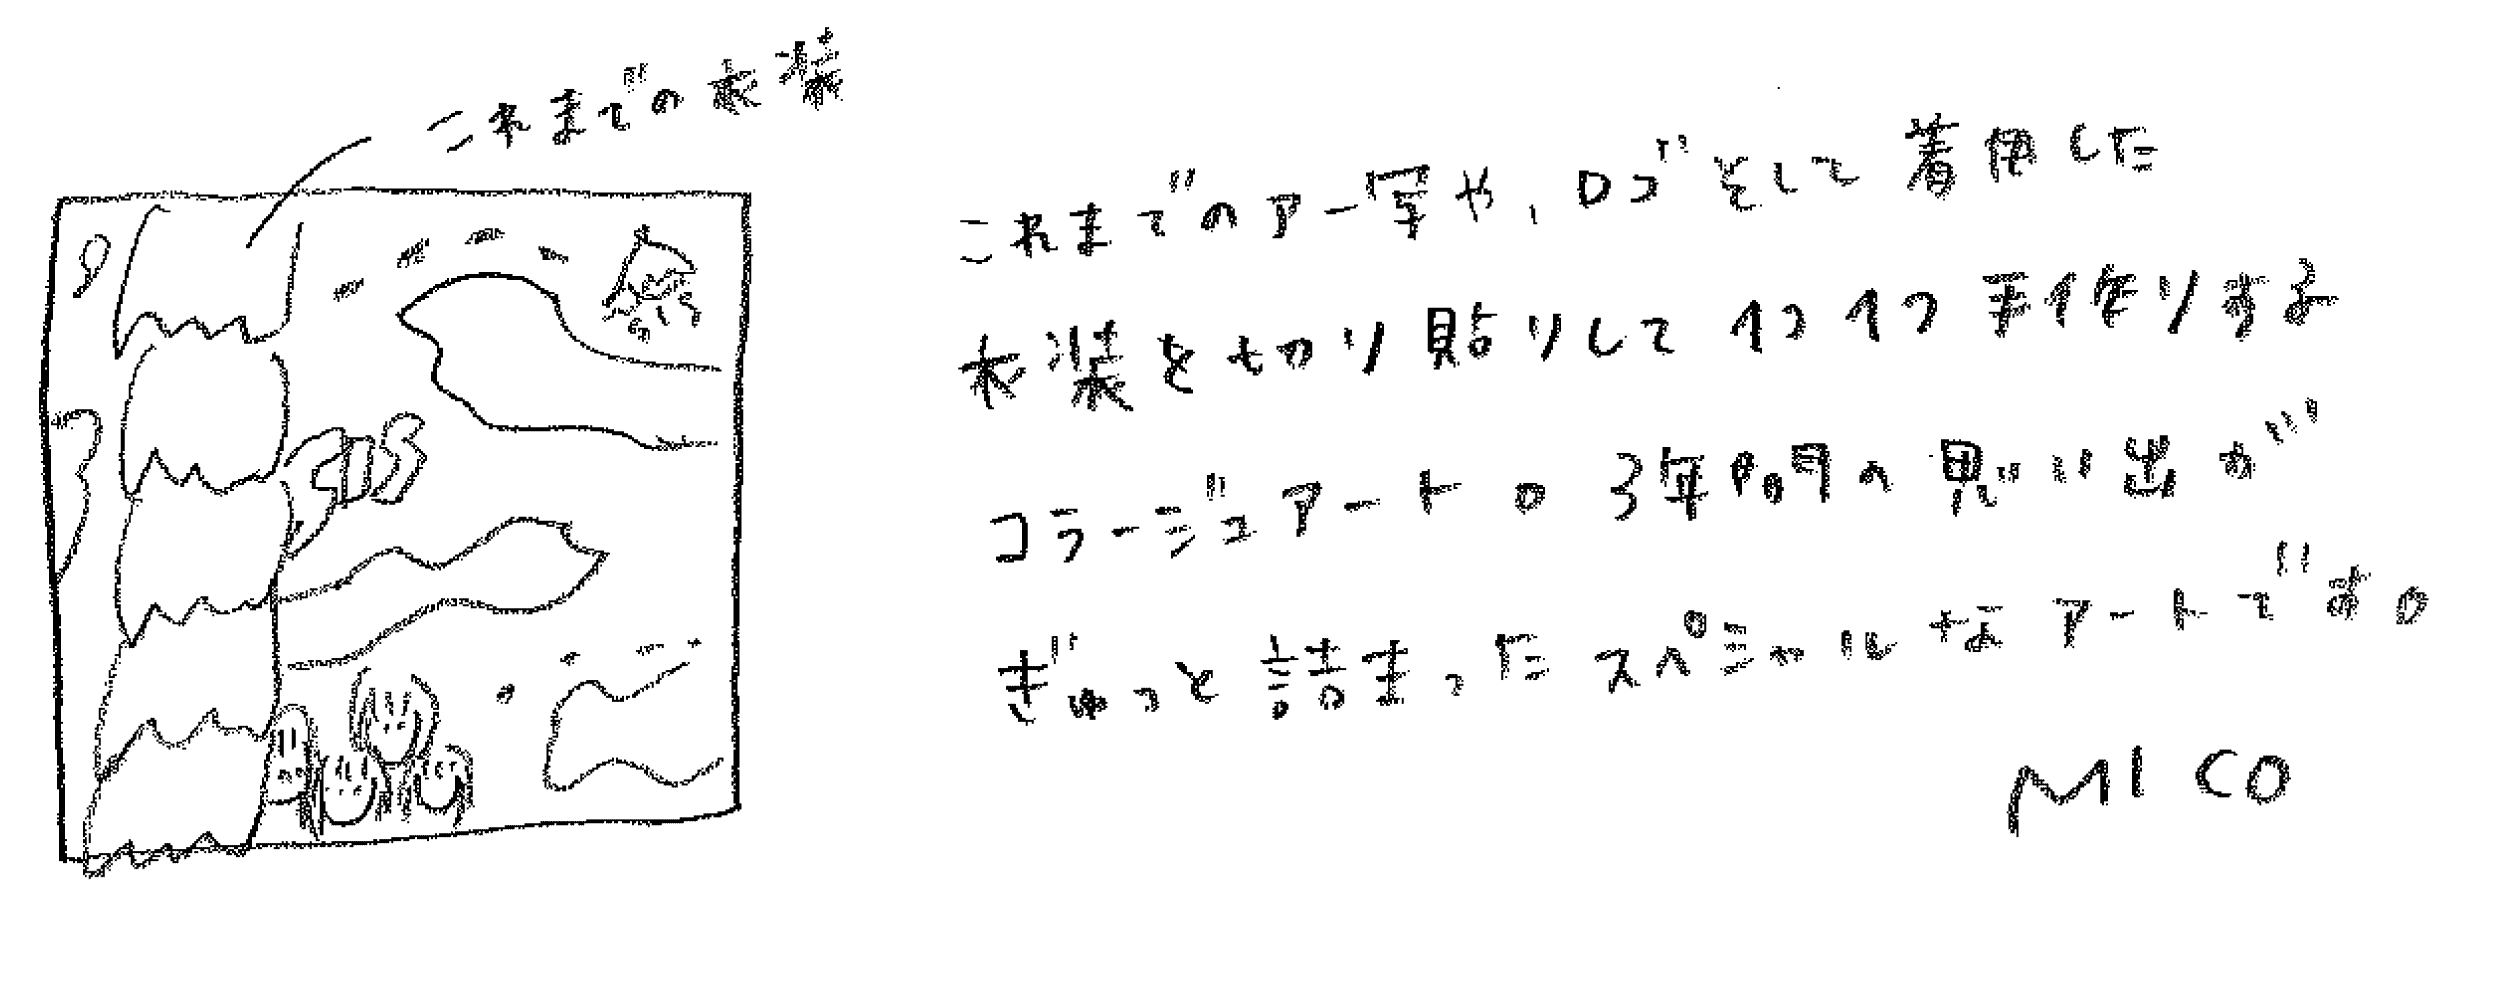 これまでの衣装
これまでのアー写や、ロゴそして着用した
衣装を切り貼りして1つ1つ手作りする
コラージュアート。3年間の思い出が
ぎゅっと詰まったスペシャルなアートです。
MICO